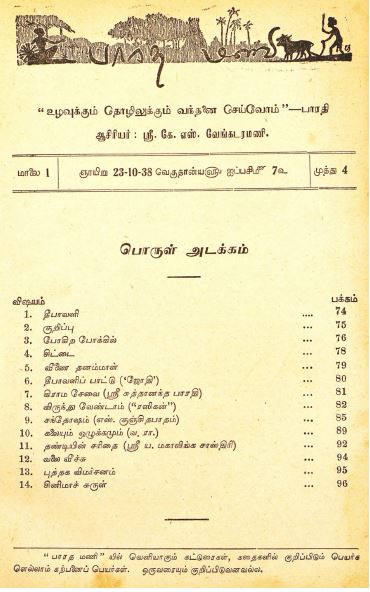 பாரத மணி
“உழவுக்கும் தொழிலுக்கும் வந்தனை செய்வோம்”—பாரதி
ஆசிரியர் : ஸ்ரீ. கே. எஸ். வேங்கடரமணி.
மாலை 1 ஞாயிறு 23-10-38 வெகுதான்யளு ஐப்பசிமீ 7உ முத்து 4
பொருள் அடக்கம்
விஷயம் பக்கம்
1. தீபாவளி .... 74
2. குறிப்பு ... 75
3. போகிற போக்கில் ... 76
4. கிட்டை ... 78
5. வீணை தனம்மாள் ... 79
6. தீபாவளிப் பாட்டு (‘ஜோதி’) ... 80
7. கிராம சேவை (ஸ்ரீ சுத்தானந்த பாரதி) ... 81
8. விருந்து வேண்டாம் (“ரஸிகன்”) ... 82
9. சந்தோஷம் (எஸ். குஞ்சிதபாதம்) ... 85
10. கலையும் ஒழுக்கமும் (வ. ரா.) ... 89
11. தண்டியின் சரிதை (ஸ்ரீ ய. மகாலிங்க சாஸ்திரி) ... 92
12. வலை வீச்சு ... 94
13. புத்தக விமர்சனம் ... 95
14. சினிமாச் சுருள் ... 96
“பாரத மணி” யில் வெளியாகும் கட்டுரைகள், கதைகளில் குறிப்பிடும் பெயர்க
ளெல்லாம் கற்பனைப் பெயர்கள். ஒருவரையும் குறிப்பிடுவனவல்ல.